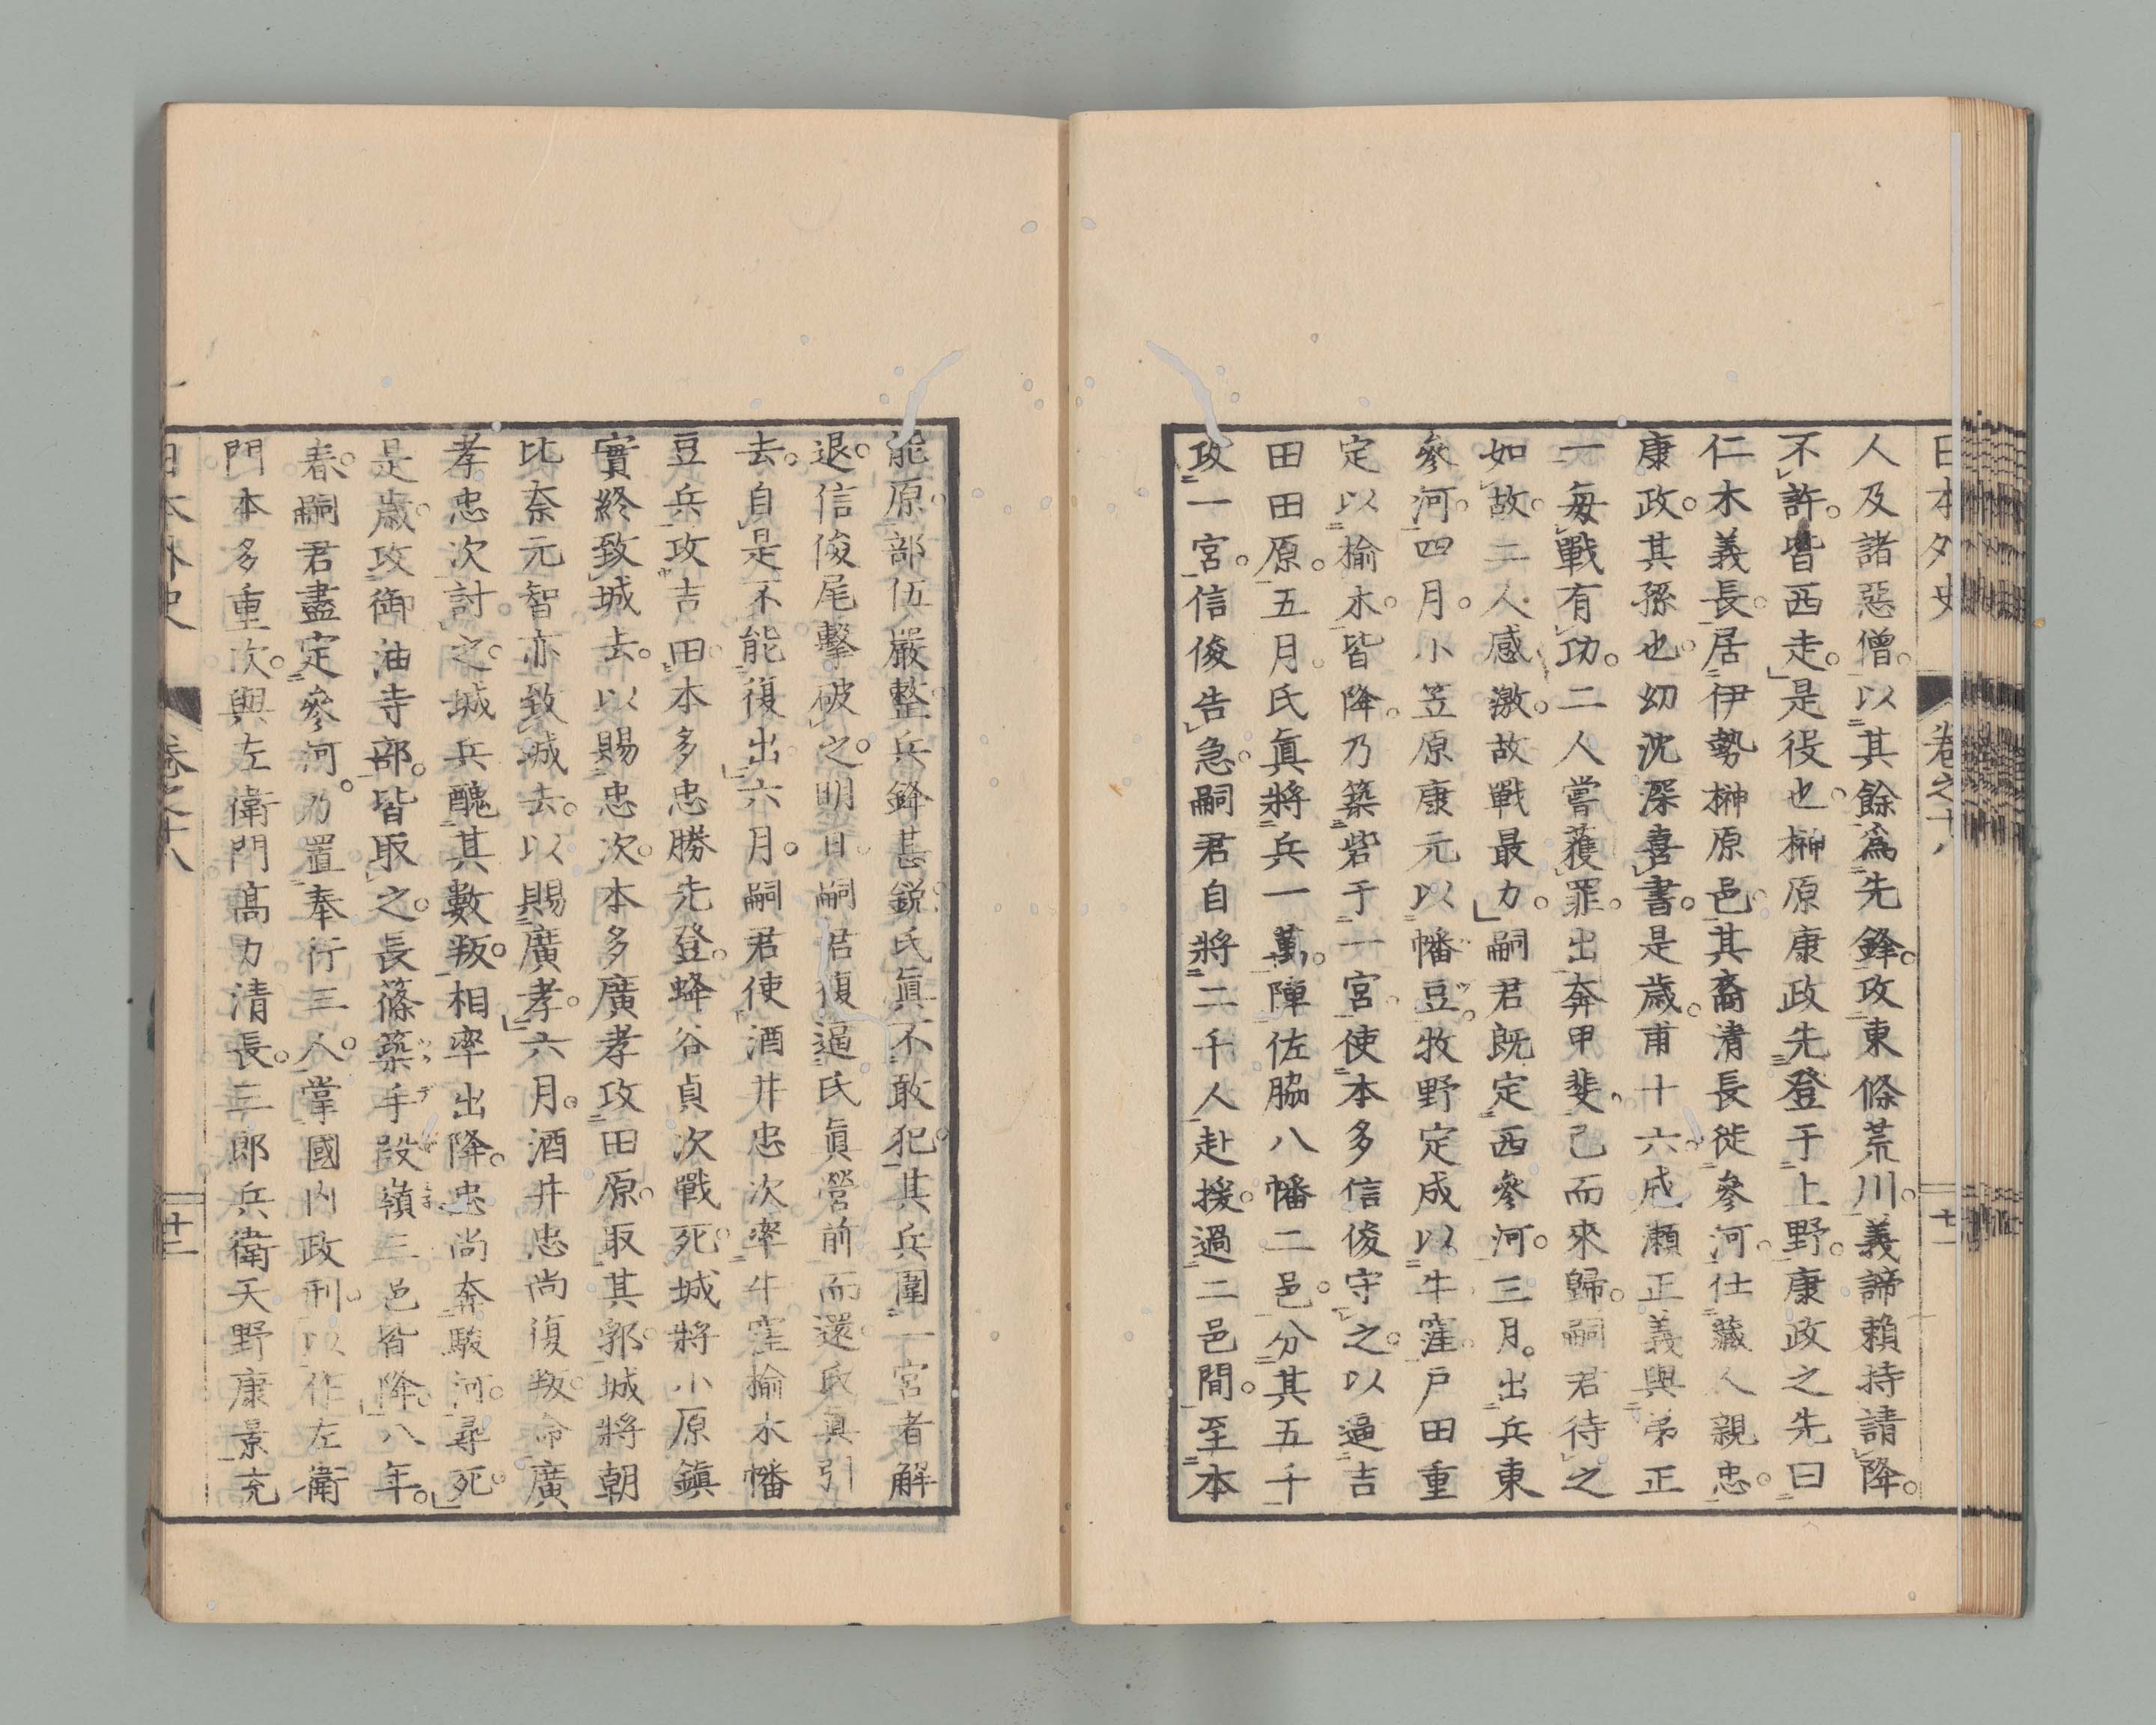 日本外史 卷之十八 十一
人及諸惡僧。以其餘爲先鋒。攻東條荒川。義諦賴持請降。
不許。皆西走。是役也。榊原康政先登于上野。康政之先曰
仁木義長。居伊勢榊原邑。其裔清長徙參河。仕藏人親忠。
康政其孫也。幼沈深喜書。是歲。甫十六。成瀨正義與弟正
一每戰有功。二人嘗獲罪。出奔甲斐。已而來歸。嗣君待之
如故。二人感激。故戰最力。嗣君既定西參河。三月。出兵東
參河。四月。小笠原康元以幡豆。牧野定成以牛窪。戶田重
定以楡木。皆降。乃築砦于一宮。使本多信俊守之。以逼吉
田田原。五月。氏眞將兵一萬。陣佐脇八幡二邑。分其五千
攻一宮。信俊告急。嗣君自將二千人赴援。過二邑間。至本
能原。部伍嚴整。兵鋒甚銳。氏眞不敢犯。其兵圍一宮者解
退。信俊尾擊破之。明日。嗣君復逼氏眞營前而還。氏眞引
去。自是不能復出。六月。嗣君使酒井忠次率牛窪楡木幡
豆兵攻吉田。本多忠勝先登。蜂谷貞次戰死。城將小原鎭
實終致城去。以賜忠次。本多廣孝攻田原。取其郛。城將朝
比奈元智亦致城去。以賜廣孝。六月。酒井忠尚復叛。命廣
孝忠次討之。城兵醜其數叛。相率出降。忠尚奔駿河。尋死。
是歲。攻御油寺部。皆取之。長篠築手段嶺三邑皆降。八年。
春。嗣君盡定參河。乃置奉行三人。掌國內政刑。以作左衛
門本多重次。與左衛門高力清長。三郎兵衛天野康景充
日本外史 卷之十八 十二